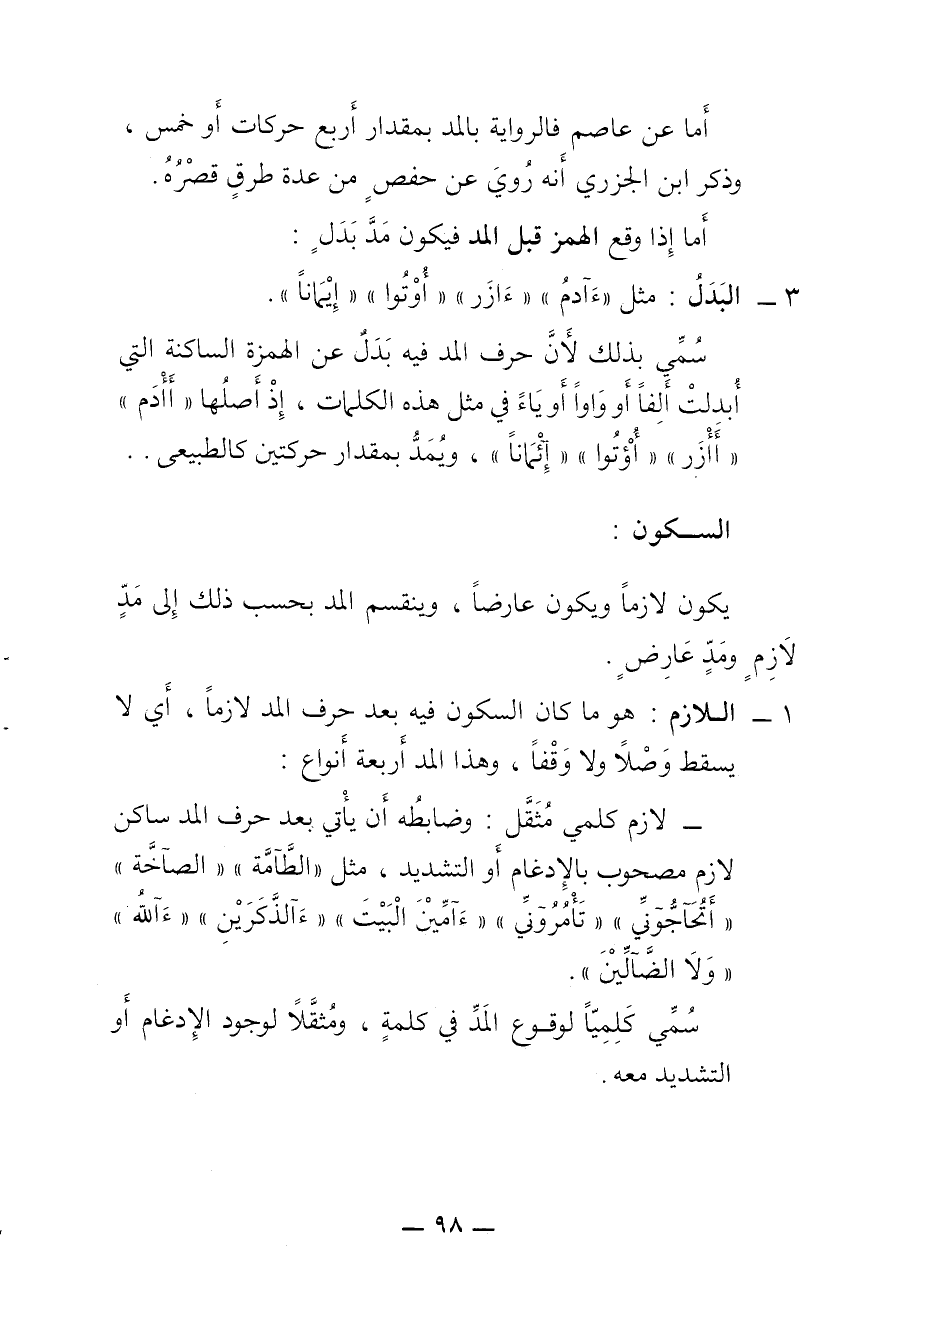 أَما عن عاصم فالرواية بالمد بمقدار أَربع حركات أَو خمس ،
وذكر ابن الجزري أَنه رُويَ عن حفصٍ من عدة طرقٍ قصْرُهُ .
أَما إِذا وقع الهمز قبل المد فيكون مَدَّ بَدَلٍ :
٣ ـ البَدَلُ : مثل «ءَآدمُ» «ءَازَر» «أُوْتُوا» «إِيْمَاناً» .
سُمِّي بذلك لأَنَّ حرف المد فيه بَدَلٌ عن الهمزة الساكنة التي
أُبدلتْ أَلِفاً أَو وَاواً أَو يَاءً في مثل هذه الكلمات ، إِذْ أَصلُها «أَأْدَم»
«أَأْزَر» «أُؤْتُوا» «إِئْمَاناً» ، ويُمَدُّ بمقدار حركتين كالطبيعى . .
السكون :
يكون لازماً ويكون عارضاً ، وينقسم المد بحسب ذلك إِلى مَدٍّ
لَازِمٍ ومَدٍّ عَارِضٍ .
١ ـ اللازم : هو ما كان السكون فيه بعد حرف المد لازماً ، أَي لا
يسقط وَصْلًا ولا وَقْفاً ، وهذا المد أَربعة أَنواع :
ـ لازم كلمي مُثَقَّل : وضابطُه أَن يأْتي بعد حرف المد ساكن
لازم مصحوب بالإِدغام أَو التشديد ، مثل «الطَّآمَّة» «الصآخَّة»
«أَتُحَآجُّوَنِّي» «تَأْمُرُوَنِّي» «ءَآمِّيْنَ الْبَيْتَ» «ءَآلذَّكَرَيْنِ» «ءَآللهُ»
«وَلَا الضَّآلِّيْنَ» .
سُمِّي كَلِمِيّاً لوقوع المَدِّ في كلمةٍ ، ومُثقَّلًا لوجود الإِدغام أَو
التشديد معه .
ـ ٩٨ ـ